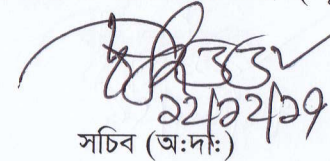 ১২/১২/১৭
সচিব (অ:দা:)